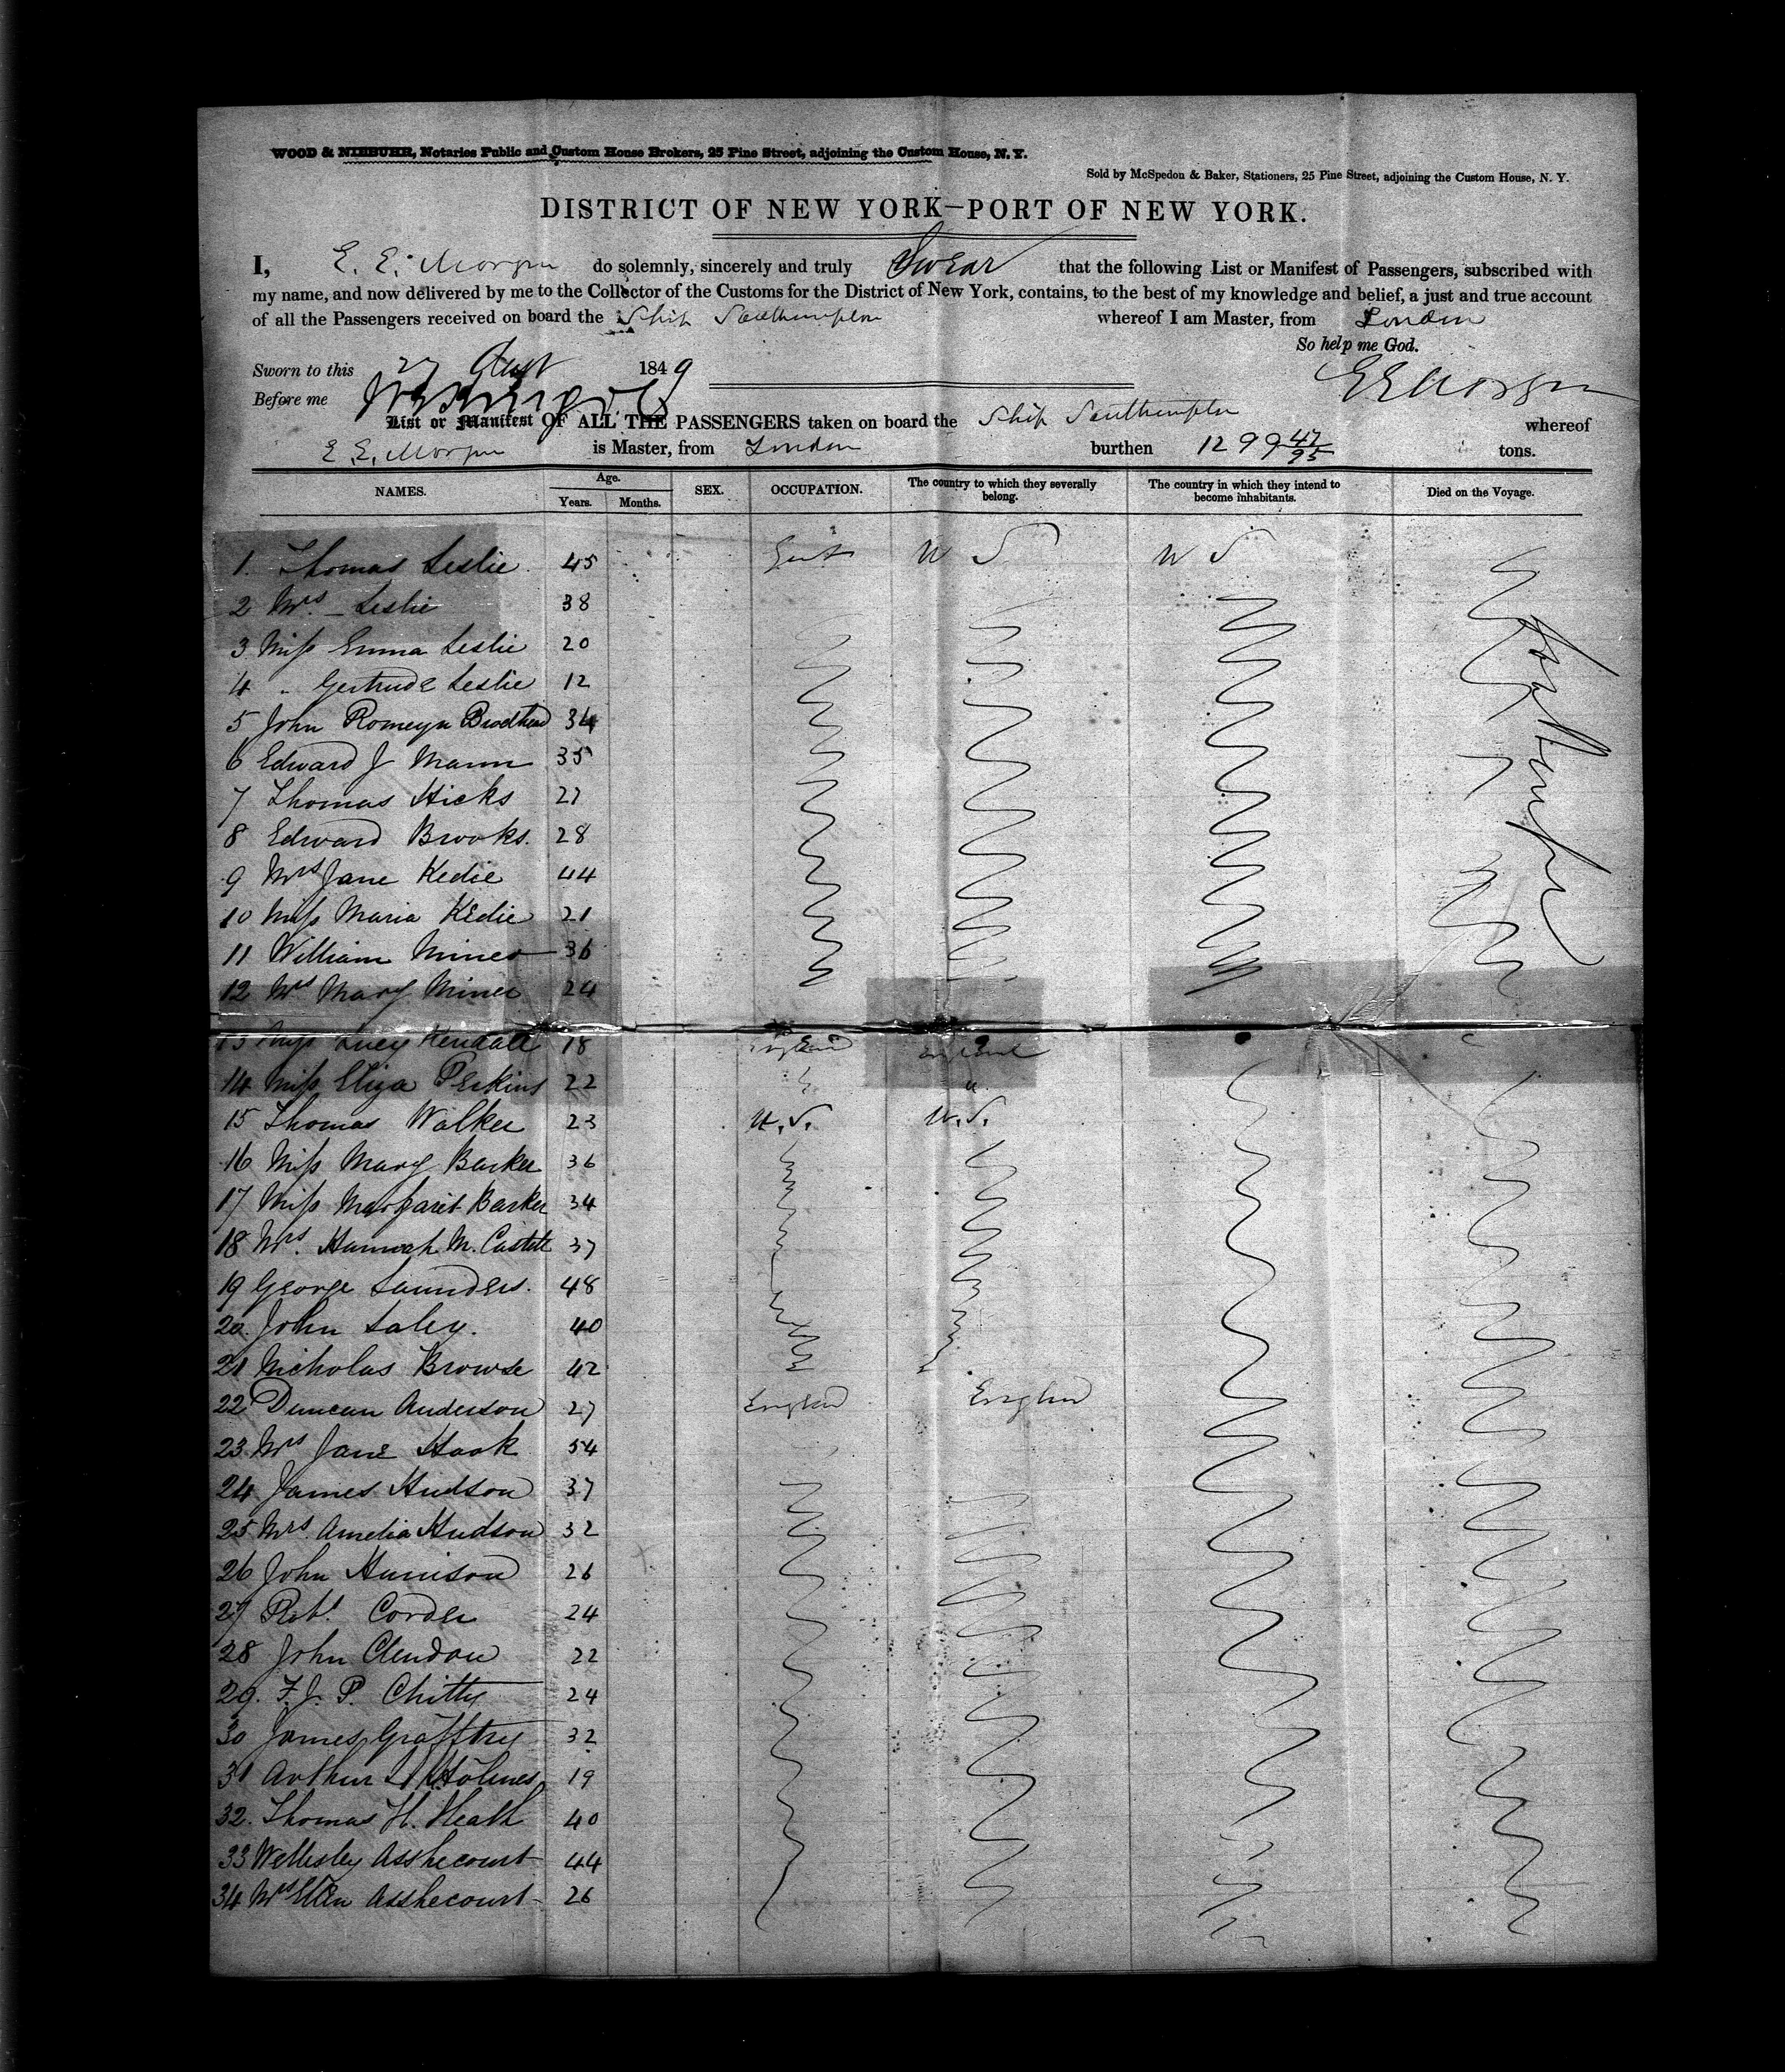 WOOD & NIEBUHR, Notaries Public and Custom House Brokers, 25 Pine Street, adjoining the Custom House, N. Y.
Sold by McSpedon & Baker, Stationers, 25 Pine Street, adjoining the Custom House, N. Y.
DISTRICT OF NEW YORK—PORT OF NEW YORK.
I, E. E. Morgan do solemnly, sincerely and truly Swear that the following List or Manifest of Passengers, subscribed with
my name, and now delivered by me to the Collector of the Customs for the District of New York, contains, to the best of my knowledge and belief, a just and true account
of all the Passengers received on board the Ship Southampton whereof I am Master, from London
So help me God.
Sworn to this 27 Augt 1849
E E Morgan
Before me
List or Manifest OF ALL THE PASSENGERS taken on board the Ship Southampton whereof
E. E. Morgan is Master, from London burthen 1299 47/95 tons.
NAMES. Age. Years. Months. SEX. OCCUPATION. The country to which they severally belong. The country in which they intend to become inhabitants. Died on the Voyage.
1. Thomas Leslie 45 Gent U S U S
2 Mrs — Leslie 38
3 Miss Emma Leslie 20
4 " Gertrude Leslie 12
5 John Romeyn Brodhead 34
6 Edward J Mann 35
7 Thomas Hicks 27
8 Edward Brooks. 28
9 Mrs Jane Kedie 44
10 Miss Maria Kedie 21
11 William Miner 36
12 Mrs Mary Miner 24
13 Miss Lucy Kendall 18 England England
14 Miss Eliza Perkins 22 "
15 Thomas Walker 23 U.S. U.S.
16 Miss Mary Barker 36
17 Miss Margaret Barker 34
18 Mrs. Hannah M. 37
19 George Saunders. 48
20. John Saley. 40
21 Nicholas Browse 42
22 Duncan Anderson 27 England England
23. Mrs Jane Hook 54
24 James Hudson 37
25 Mrs. Amelia Hudson 32
26 John Harrison 26
27 Robt. Corder 24
28 John Clendon 22
29. F. J. P. Chitty 24
30 James Grafftey 32
31 Arthur Holmes 19
32. Thomas H. Heath 40
33 Wellesley Asshecourt 44
34 Mrs Ellen Asshecourt 26